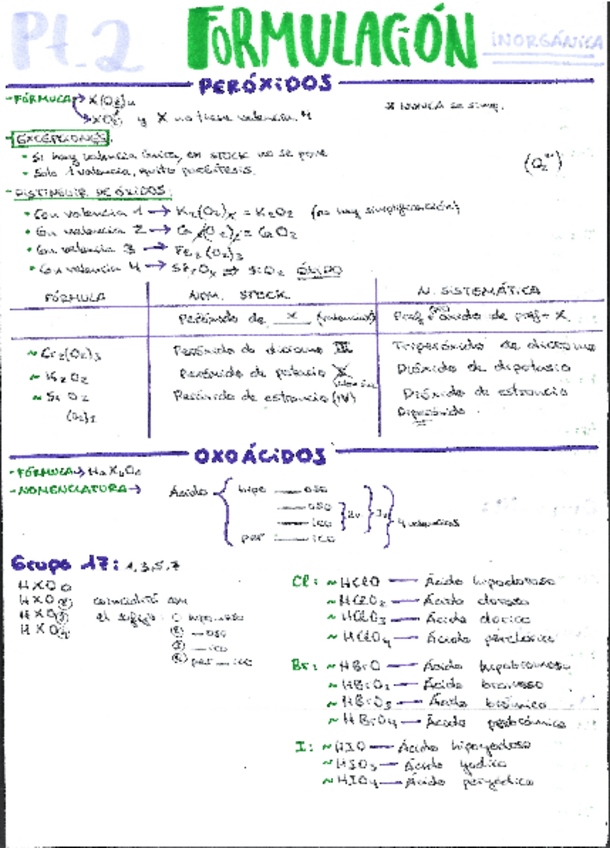 Pt.2 FORMULACIÓN INORGÁNICA
PERÓXIDOS
-FÓRMULA → X(O2)n
X NUNCA se simp.
y X no tiene valencia 4
-EXCEPCIONES:
• Si hay valencia única, en STOCK no se pone
• Solo 1 valencia, quito paréntesis.
-DISTINGUIR DE ÓXIDOS:
• Con valencia 1 → K2(O2)x = K2O2 (no hay simplificación)
• Con valencia 2 →
• Con valencia 3 → Fe2(O2)3
• Con valencia 4 → ÓXIDO
FÓRMULA NOM. STOCK N. SISTEMÁTICA
Peróxido de ___ x (valencia) de pref+ X
~ Cr2(O2)3 Peróxido de dicromo III Triperóxido de dicromo
~ K2O2 Peróxido de potasio Dióxido de dipotasio
~ Sr O2 Peróxido de estroncio (IV) Dióxido de estroncio
(O2)2 Diperóxido
OXOÁCIDOS
-FÓRMULA → HaXbOc
-NOMENCLATURA → Ácido
hipo ___ oso
___ oso
___ ico
per ___ ico
2v 3v 4 valencias
Grupo 17: 1,3,5,7
HXO
HXO2 coincidirá con
HXO3 el sufijo: hipo-oso
HXO4 ② —oso
③ —ico
④ per—ico
Cl: ~ HClO — Ácido hipocloroso
~ HClO2 — Ácido cloroso
~ HClO3 — Ácido clórico
~ HClO4 — Ácido perclórico
Br: ~ HBrO — Ácido hipobromoso
~ HBrO2 — Ácido bromoso
~ HBrO3 — Ácido brómico
~ HBrO4 — Ácido perbrómico
I: ~ HIO — Ácido hipoyodoso
~ HIO3 — Ácido yódico
~ HIO4 — Ácido peryódico